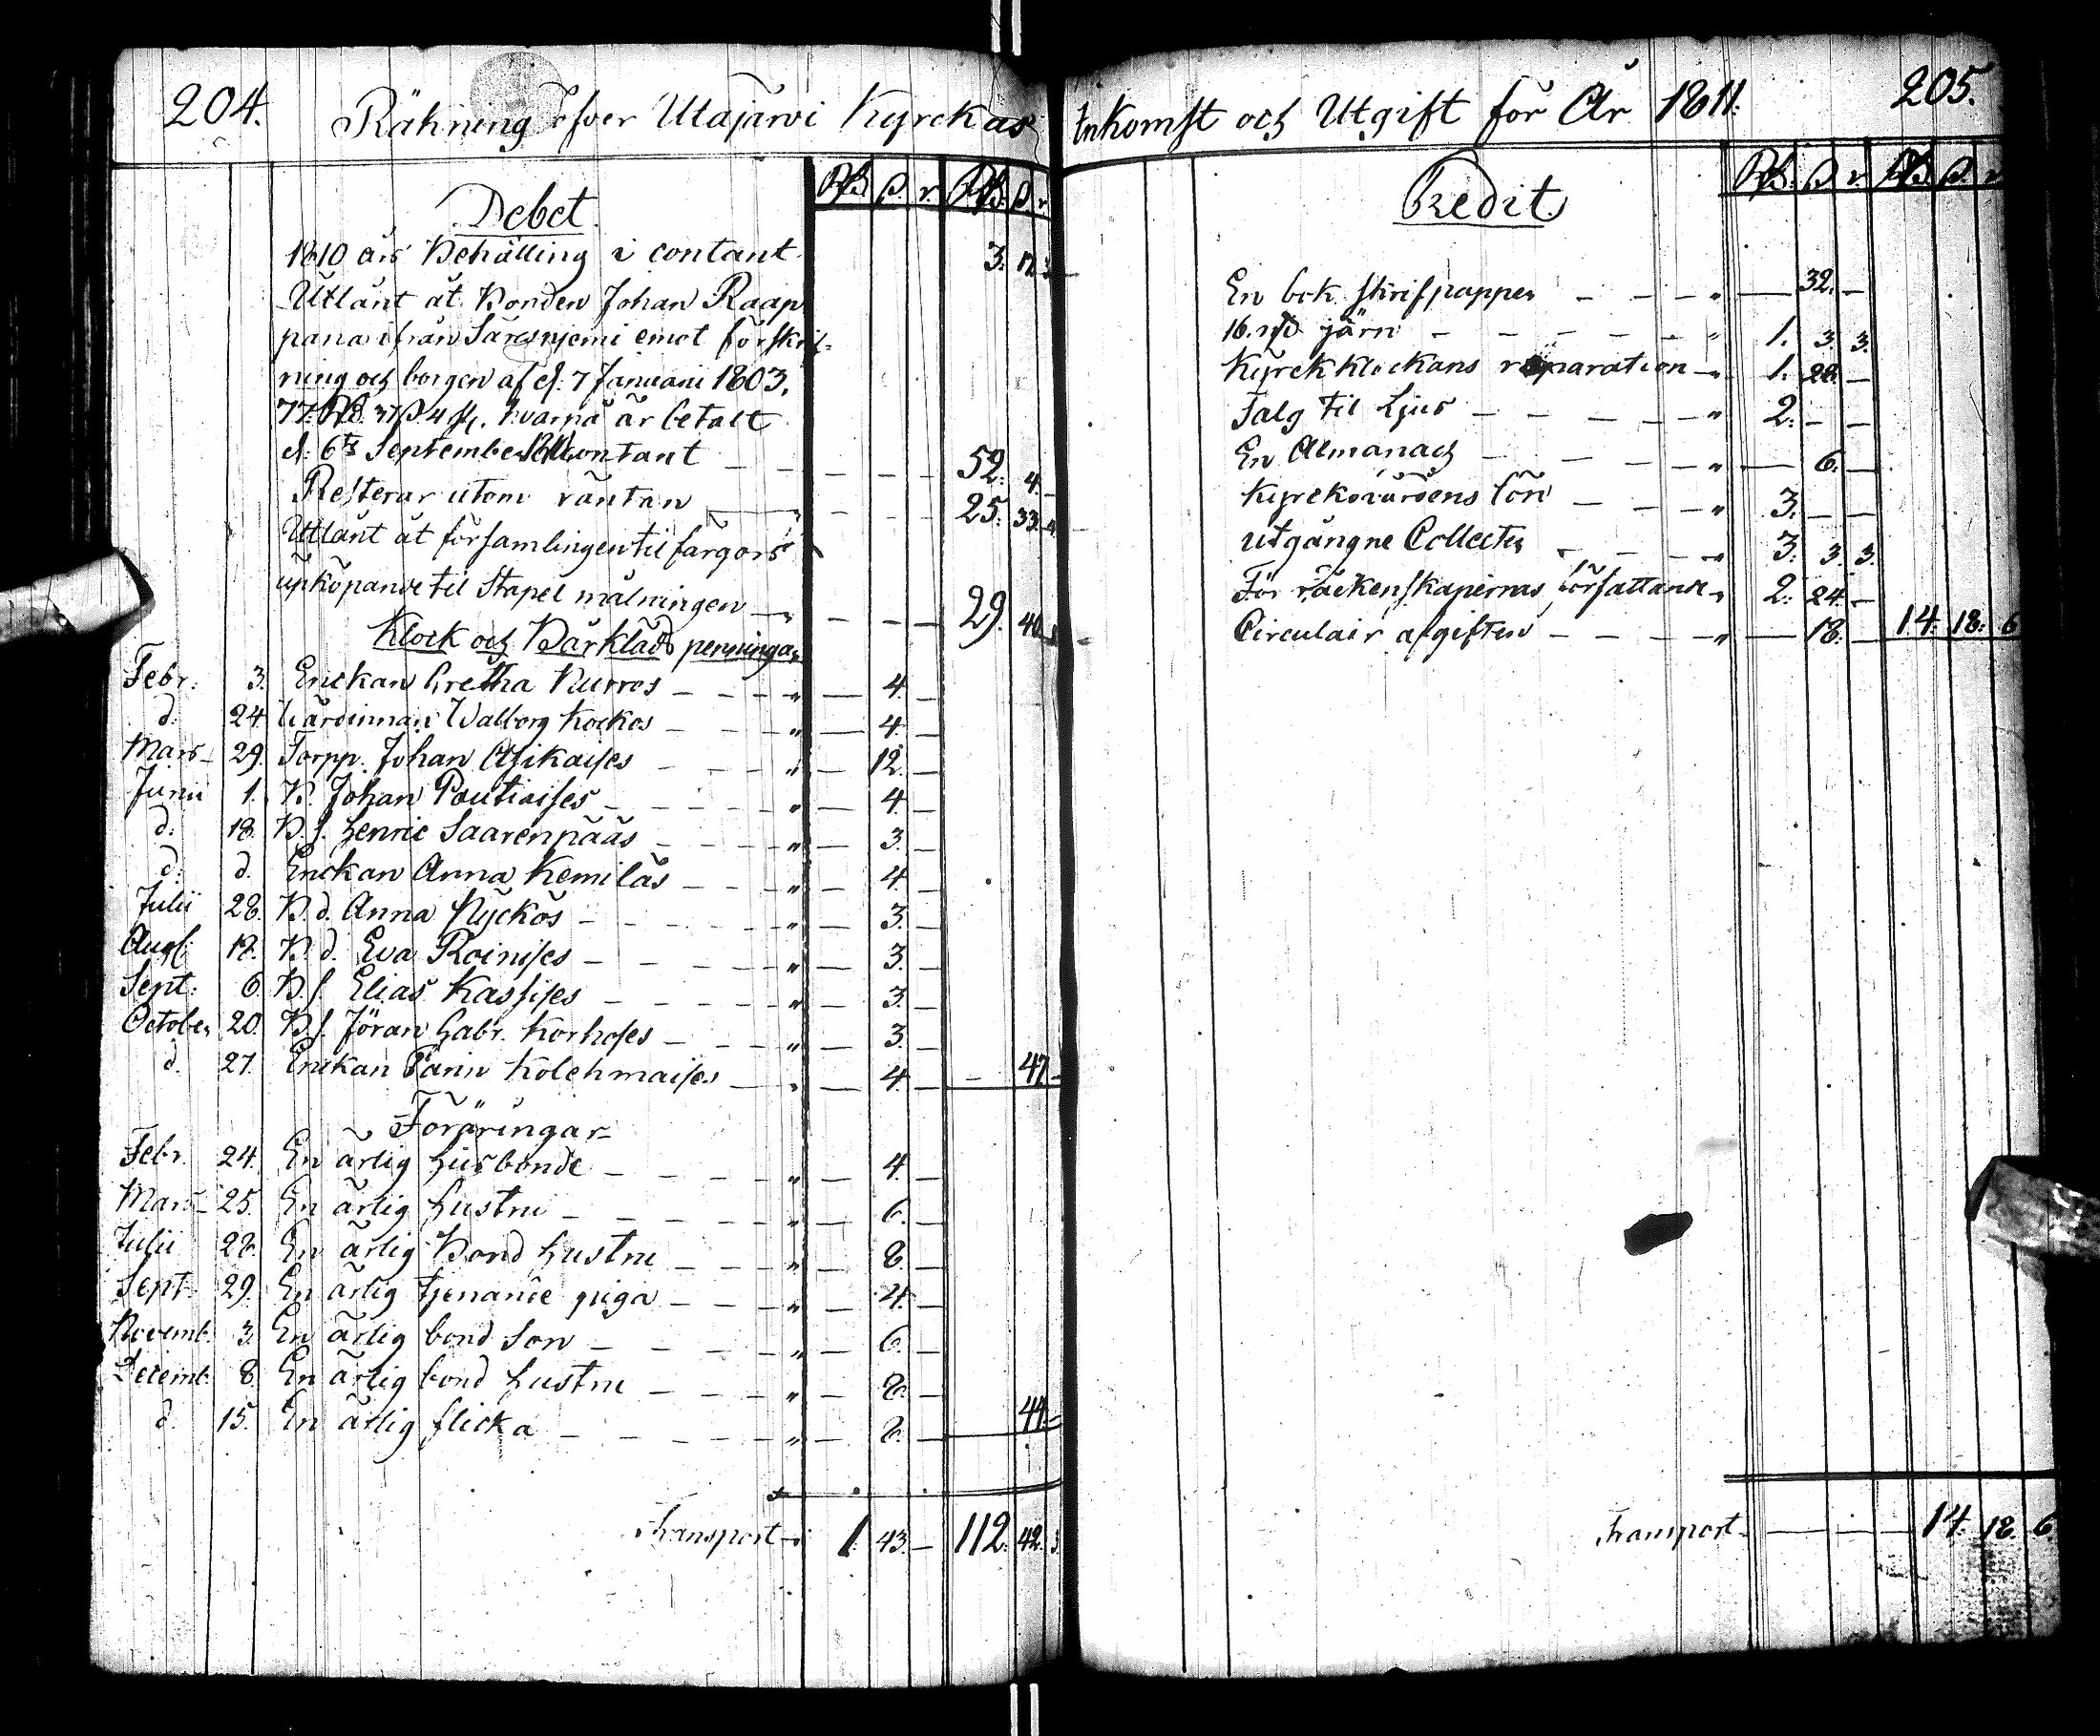 204.
Räkning öfver Utajärvi Kyrckas
Debet.
Rd. ß. r. Rd. ß. r.
1810 års Behålling i contant 3. 17. 3
Utlänt åt Bonden Johan Raap
pana ifrån Säresniemi emot förskrif-
ning och borgen af d. 7 Januarii 1803,
77 Rd. 37 ß 4 r, hvarpå är betalt
d. 6te September contant — — — 52. 4. —
Resterar utom räntan — — — 25. 33. 4
Utlänt åt församlingen til färgors
upköpande til Stapel målningen — — — 29. 40.
Klock och Bårkläds penningar
Febr. 3. Enckan Gretha Kurres — — — " — 4. —
d. 24 Värdinnan Walborg Kockos — — — " — 4. —
Mars 29. Torpp. Johan Asikaises — — — " — 12. —
Junii 1. B. Johan Poutiaises — — — " — 4. —
d: 18. B. s. Henric Saarenpääs — — — " — 3. —
d: d. Enckan Anna Kemiläs — — — " — 4. —
Julii 28. B. d. Anna Nyckös — — — " — 3. —
Aug. 18. B. d. Eva Roinises — — — " — 3. —
Sept: 6 B. s. Elias Kassises — — — " — 3. —
October 20. B. s. Jöran Gabr. Korhoses — — — " — 3. —
d. 27. Enckan Carin Kolehmaises — " — 4. — — 47 —
Föräringar
Febr. 24. En ärlig husbonde — — — " — 4. —
Mars 25. En ärlig hustru — — — " — 6. —
Julii 28. En ärlig Bond hustru — — — " — 8. —
Sept. 29. En ärlig tjenande piga — — — " — 4. —
Novemb. 3. En ärlig bond Son — — — " — 6. —
Decemb. 8. En ärlig bond hustru — — — " — 8. —
d. 15. En ärlig flicka — — — " — 8. — — 44. —
Transport 1. 43. — 112. 42.
Inkomst och Utgift för År 1811.
205.
Credit
Rd. ß. r. Rd. ß. r
En bok skrifpapper — — — " — 32. —
16. järn — — — " 1. 3. 3.
Kyrckklockans reparation — " 1. 28. —
Talg til Ljus — — — " 2. — —
En Almanach — — — " — 6. —
Kyrckovärdens lön — — — " 3. — —
utgångne Collecter — — — " 3. 3. 3.
För räckenskapernas författande " 2. 24. —
Circulair afgiften — — — " — 18. — 14. 18. 6
Transport — — — 14. 18. 6